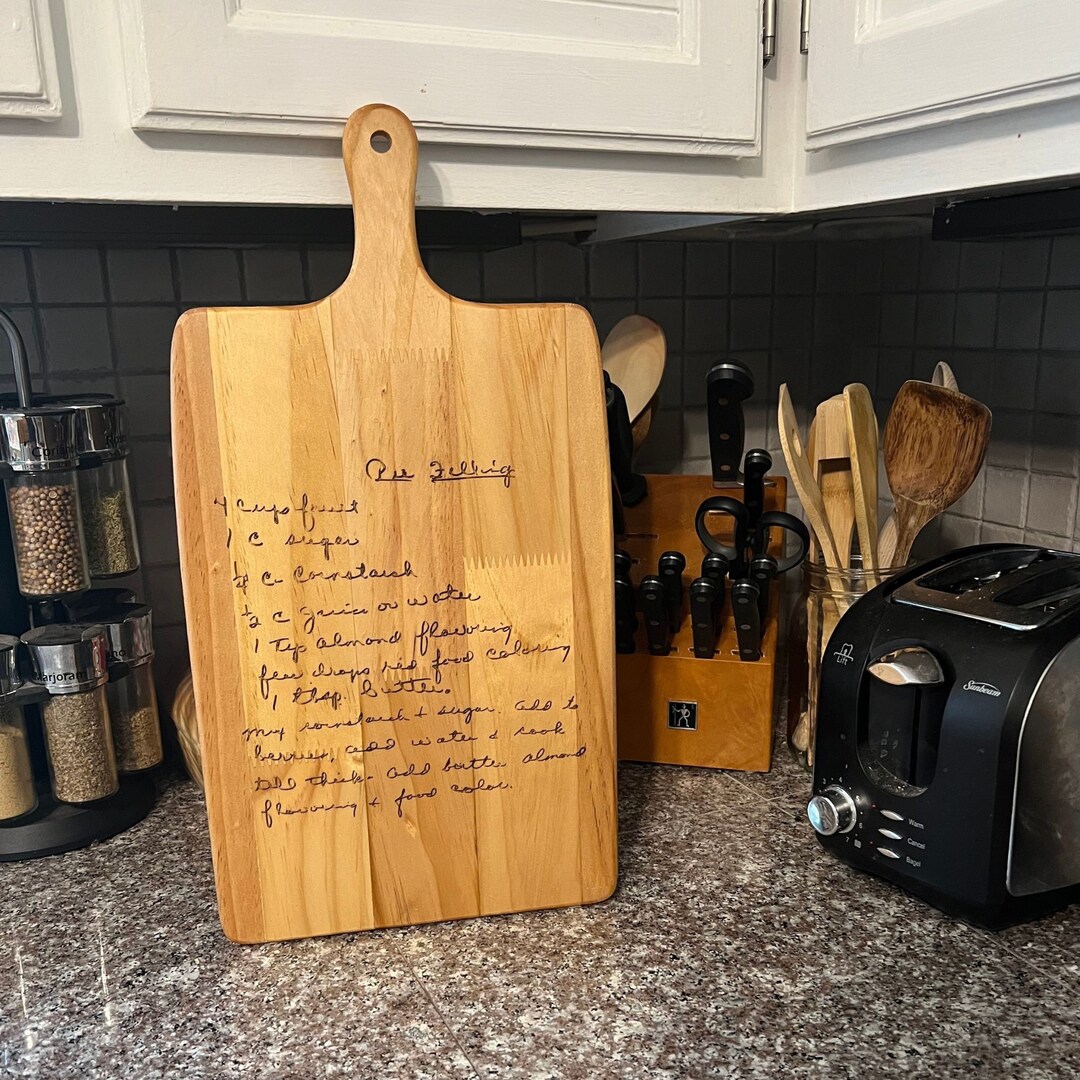 Pie Filling
4 cups fruit
1 c sugar
¼ c. Cornstarch
½ c juice or water
1 Tsp almond flavoring
few drops red food coloring
1 tbsp. butter.
mix cornstarch + sugar. add to
berries, add water & cook
till thick. add butter almond
flavoring + food color.
Marjoram
Lift
Sunbeam
Warm
Cancel
Bagel